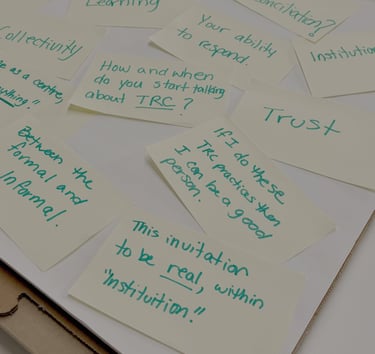 Learning
onciliation?
Your ability
to respond.
Collectivity
Institution
e as a centre,
How and when
do you start talking
about TRC?
Trust
Between the
formal and
informal.
If I do these
TRC practices then
I can be a good
person.
This invitation
to be real, within
"Instituition."